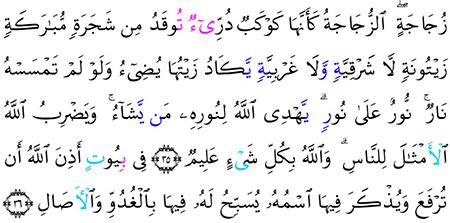 زُجَاجَةٍ ۖ ٱلزُّجَاجَةُ كَأَنَّهَا كَوْكَبٌ دُرِّىٓءٌ تُوقَدُ مِن شَجَرَةٍ مُّبَٰرَكَةٍ
زَيْتُونَةٍ لَّا شَرْقِيَّةٍ وَلَا غَرْبِيَّةٍ يَكَادُ زَيْتُهَا يُضِىٓءُ وَلَوْ لَمْ تَمْسَسْهُ
نَارٌ ۚ نُّورٌ عَلَىٰ نُورٍ ۗ يَهْدِى ٱللَّهُ لِنُورِهِۦ مَن يَشَآءُ ۚ وَيَضْرِبُ ٱللَّهُ
ٱلْأَمْثَٰلَ لِلنَّاسِ ۗ وَٱللَّهُ بِكُلِّ شَىْءٍ عَلِيمٌ ٣٥ فِى بِيُوتٍ أَذِنَ ٱللَّهُ أَن
تُرْفَعَ وَيُذْكَرَ فِيهَا ٱسْمُهُۥ يُسَبِّحُ لَهُۥ فِيهَا بِٱلْغُدُوِّ وَٱلْأَصَالِ ٣٦